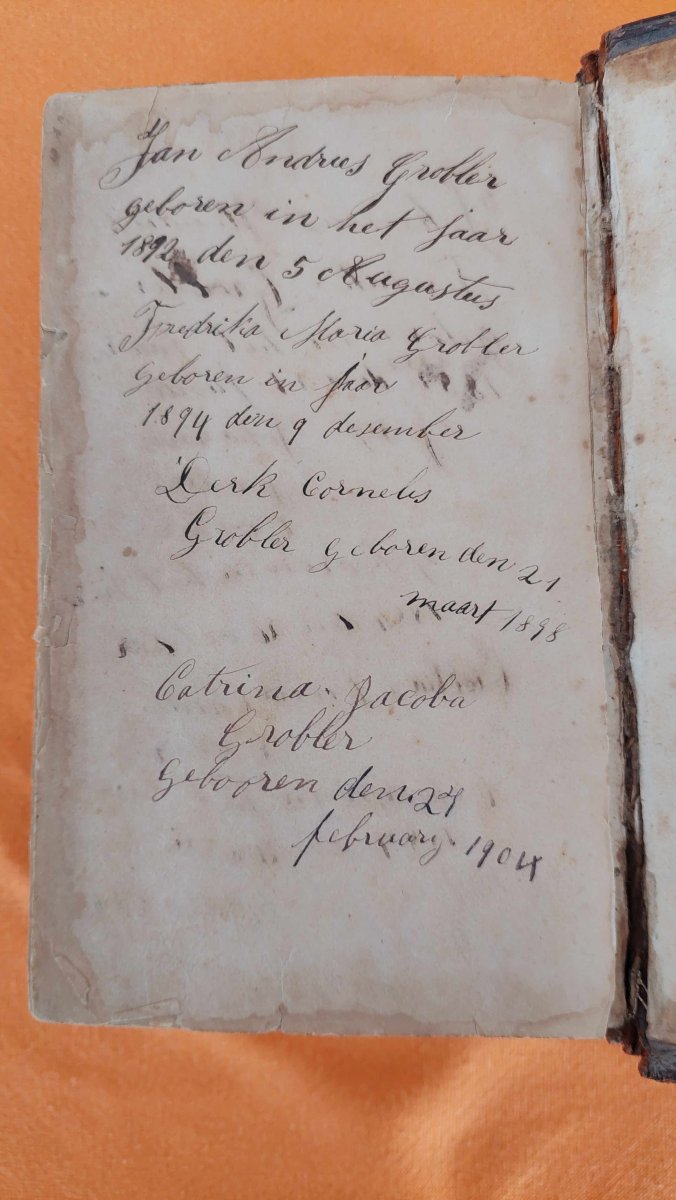 Jan Andries Grobler
geboren in het jaar
1892 den 5 Augustus
Fredrika Maria Grobler
geboren in jaar
1894 den 9 desember
Derk Cornelis
Grobler geboren den 21
maart 1898
Catrina Jacoba
Grobler
gebooren den
february 1904